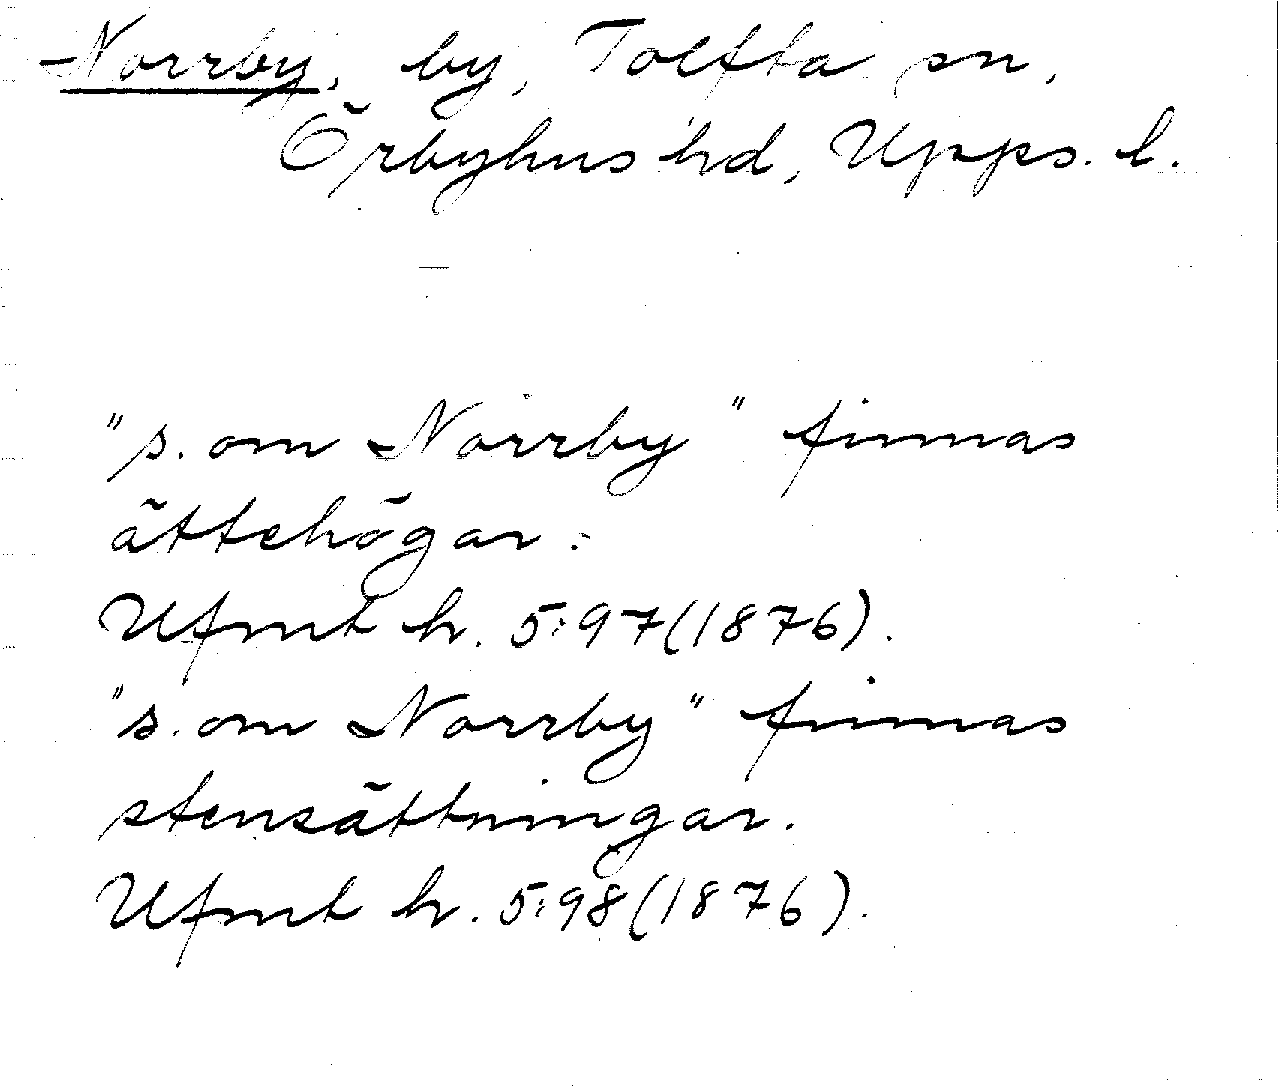 Norrby, by, Tolfta sn,
Örbyhus hd, Upps. l.
"s. om Norrby" finnas
ättehögar:
Ufmt h. 5:97(1876).
"s. om Norrby" finnas
stensättningar.
Ufmt h. 5:98(1876).